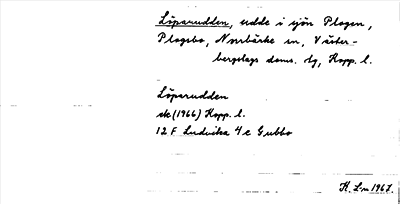 Löparudden, udde i sjön Plogen,
Plogsbo, Norrbärke sn, Väster-
bergslags doms. tg, Kopp. l.
Löparudden
ek (1966) Kopp. l.
12 F Ludvika 4 c Gubbo
K. Lm 1967.